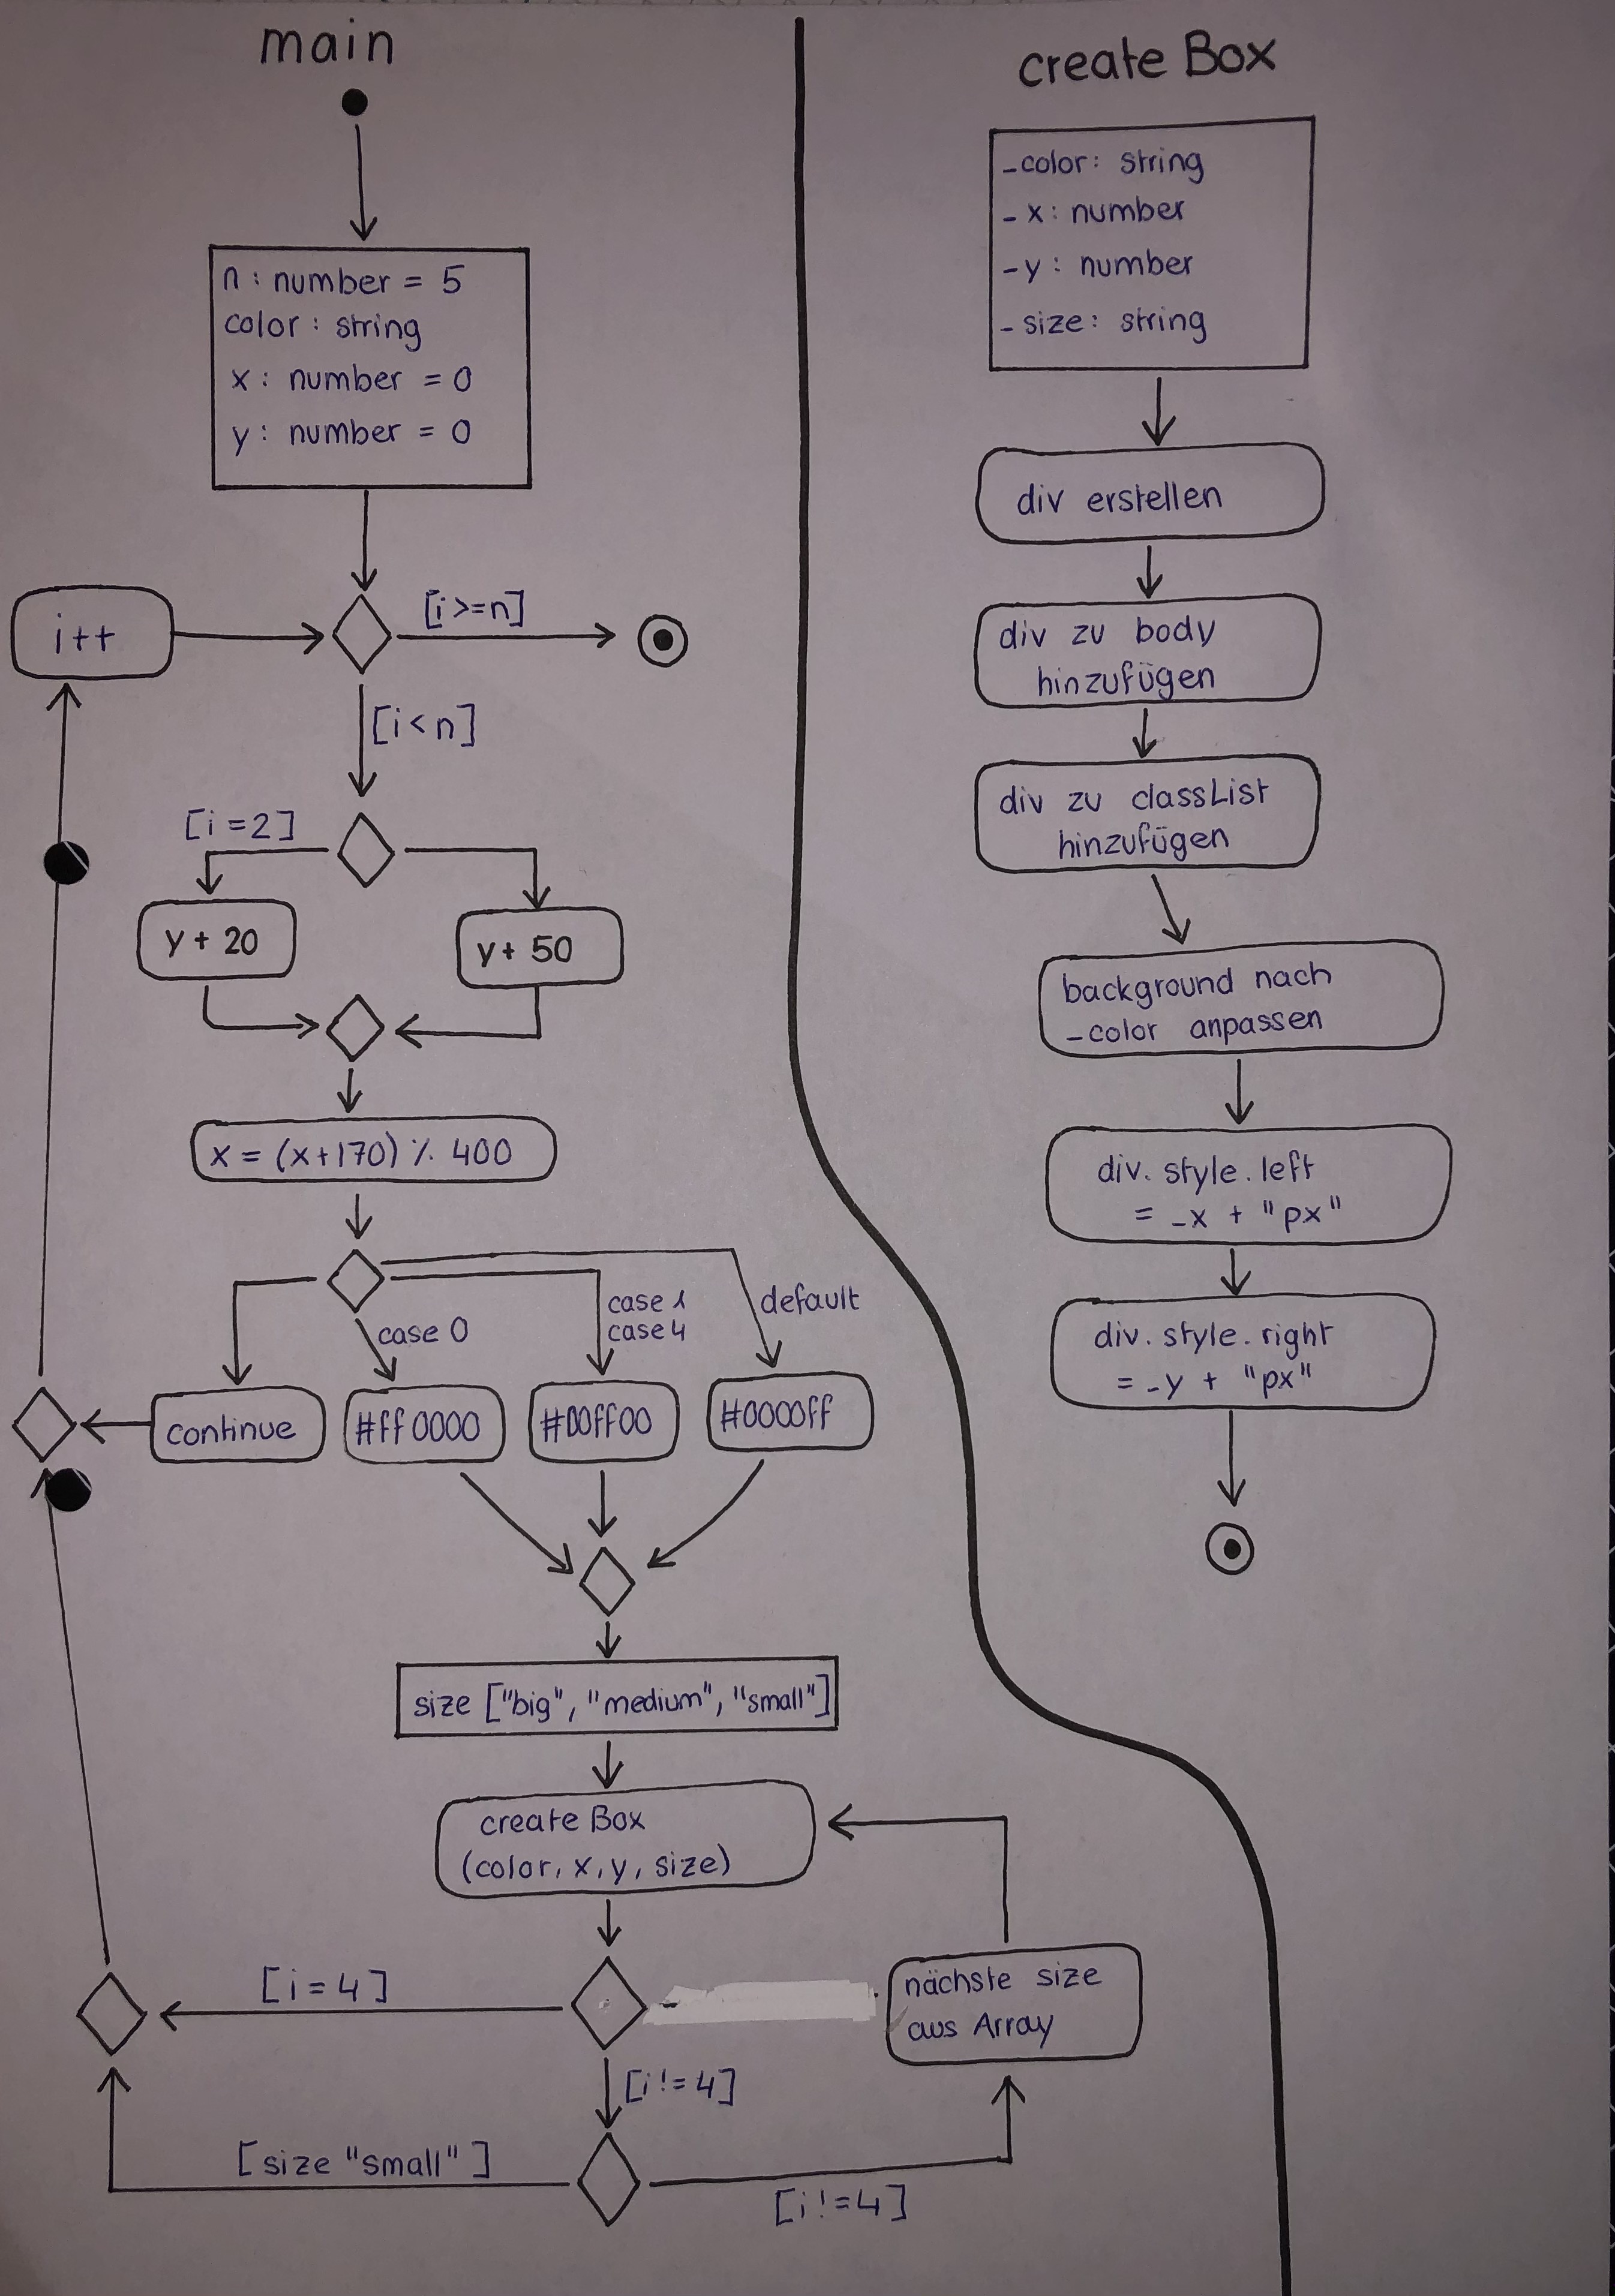 main
n : number = 5
color : string
x : number = 0
y : number = 0
i++
[i >= n]
[i < n]
[i = 2]
y + 20
y + 50
x = (x+170) % 400
case 0
case 1
case 4
default
continue
#ff0000
#00ff00
#0000ff
size ["big", "medium", "small"]
create Box
(color, x, y, size)
[i = 4]
nächste size
aus Array
[i != 4]
[size "small"]
[i != 4]
create Box
_color : string
_x : number
_y : number
_size : string
div erstellen
div zu body
hinzufügen
div zu classList
hinzufügen
background nach
_color anpassen
div.style.left
= _x + "px"
div.style.right
= _y + "px"